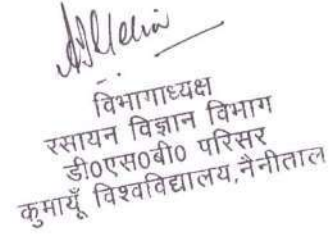 विभागाध्यक्ष
रसायन विज्ञान विभाग
डी०एस०बी० परिसर
कुमायूँ विश्वविद्यालय,नैनीताल